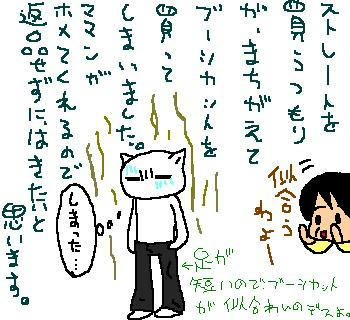 ストレートを
買うつもり
が、まちがえて
ブーツカットを
買って
しまいました。
ママンが
ホメてくれるので
返品せずにはきたいと
思います。
似合う
わよー
しまった…
←足が
短いのでブーツカット
が似合わいのデスよ。